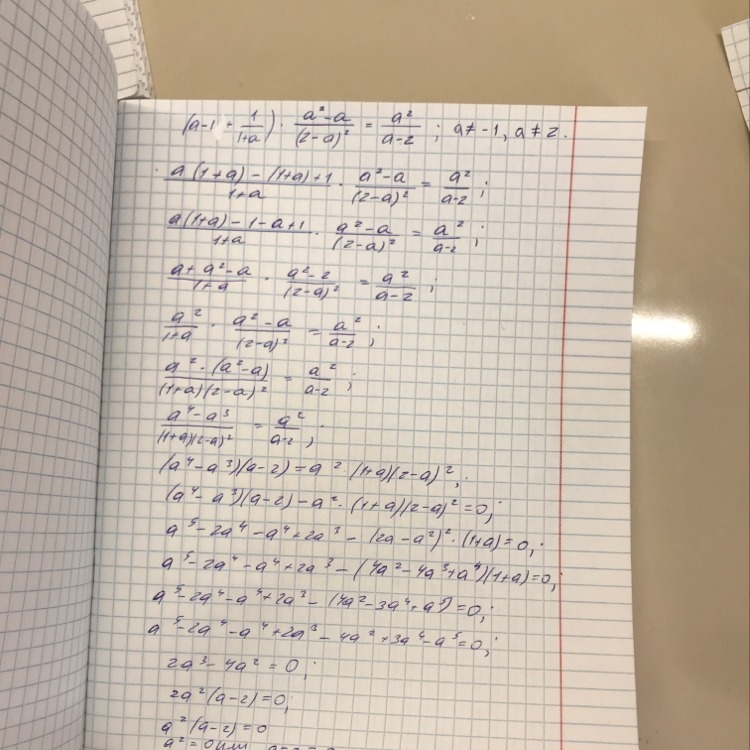 (a-1 + 1/(1+a)) · (a²-a)/(2-a)² = a²/(a-2) ; a≠-1, a≠2.
(a(1+a) - (1+a)+1)/(1+a) · (a²-a)/(2-a)² = a²/(a-2) ;
(a(1+a) - 1 - a+1)/(1+a) · (a²-a)/(2-a)² = a²/(a-2) ;
(a+a²-a)/(1+a) · (a²-2)/(2-a)² = a²/(a-2) ;
a²/(1+a) · (a²-a)/(2-a)² = a²/(a-2) ;
(a²·(a²-a))/((1+a)(2-a)²) = a²/(a-2) ;
(a⁴-a³)/((1+a)(2-a)²) = a²/(a-2) ;
(a⁴-a³)(a-2) = a² (1+a)(2-a)²;
(a⁴-a³)(a-2) - a²·(1+a)(2-a)² = 0;
a⁵-2a⁴-a⁴+2a³ - (2a-a²)²·(1+a) = 0;
a⁵-2a⁴-a⁴+2a³ - (4a²-4a³+a⁴)(1+a) = 0;
a⁵-2a⁴-a⁴+2a³ - (4a²-3a⁴+a⁵) = 0;
a⁵-2a⁴-a⁴+2a³ - 4a²+3a⁴-a⁵ = 0;
2a³-4a² = 0;
2a²(a-2) = 0;
a²(a-2) = 0
a² = 0 или